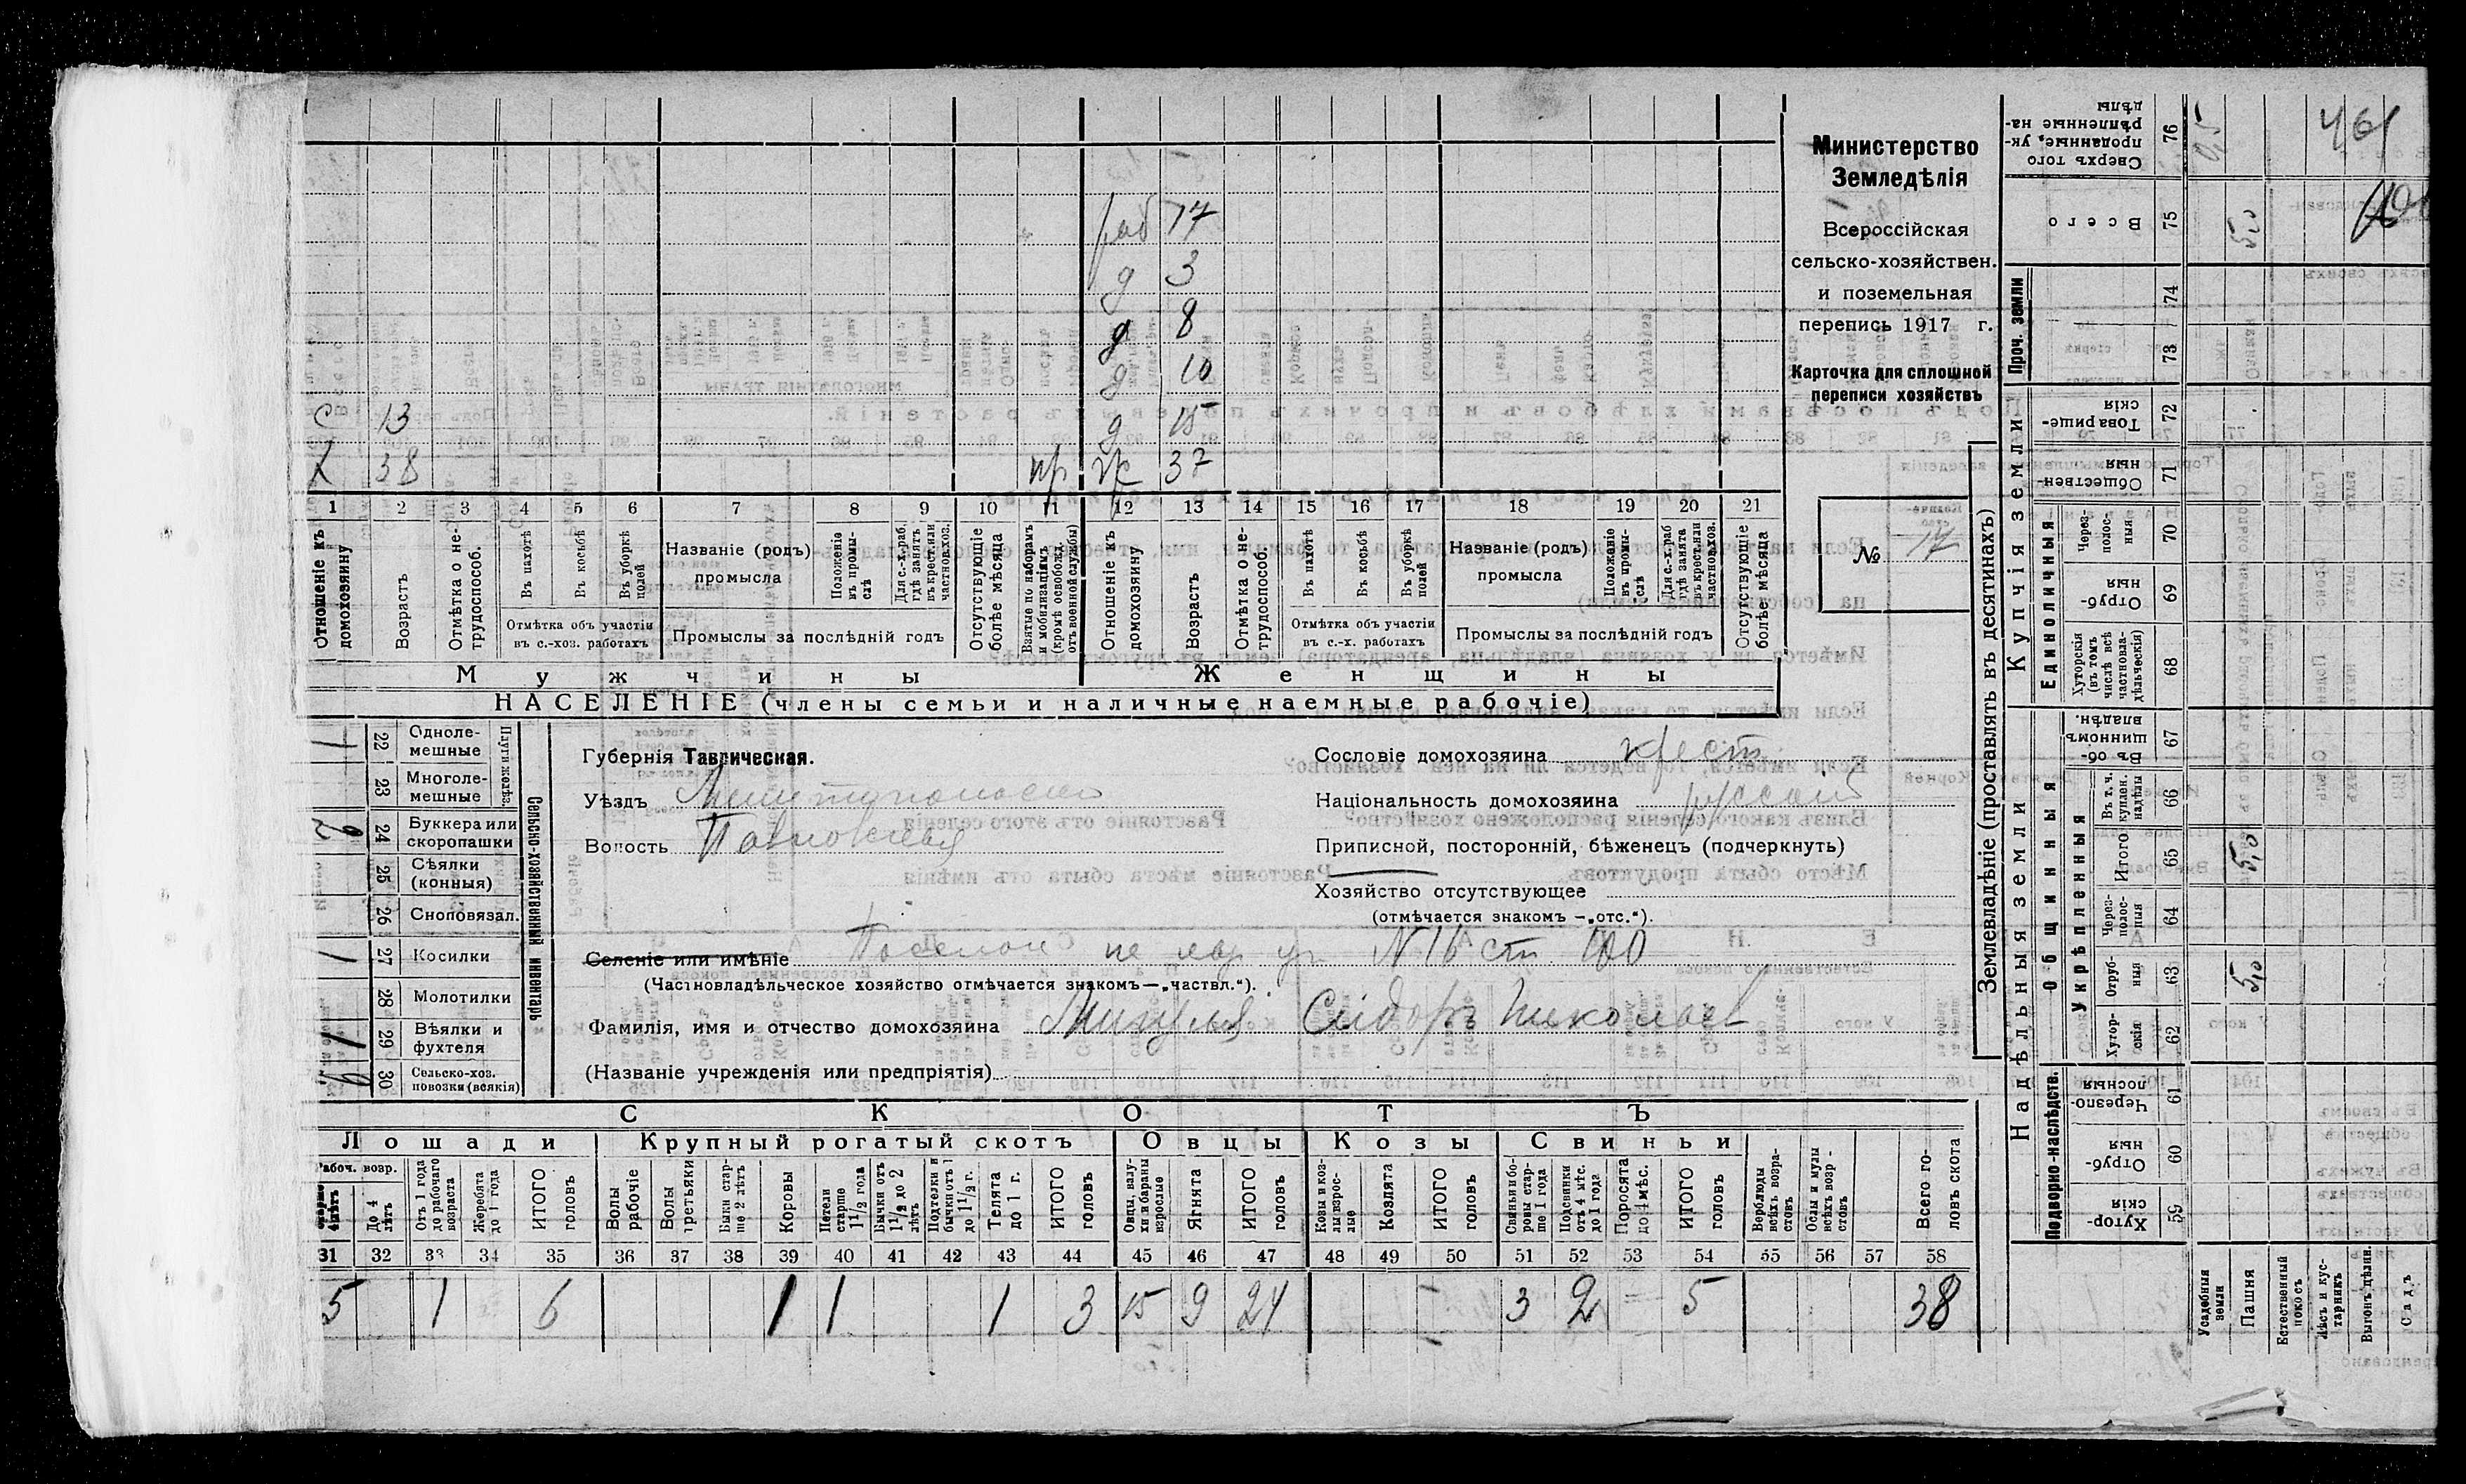 Министерство
Земледѣлія
Всероссійская
сельско-хозяйствен.
и поземельная
перепись 1917 г.
Карточка для сплошной
переписи хозяйствъ
№ 17
раб 17
д 3
д 8
д 10
с 13 д 15
Х 38 пр ж 37
1 2 3 4 5 6 7 8 9 10 11 12 13 14 15 16 17 18 19 20 21
Отношеніе къ домохозяину
Возрастъ
Отмѣтка о не-трудоспособ.
Въ пахотѣ
Въ косьбѣ
Въ уборкѣ полей
Отмѣтка объ участіи въ с.-хоз. работахъ
Названіе (родъ) промысла
Положеніе въ промы-слѣ
Для с.-х. раб. гдѣ занятъ въ крест. или частнов. хоз.
Промыслы за послѣдній годъ
Отсутствующіе болѣе мѣсяца
Взятые по наборамъ и мобилизаціямъ (кромѣ освобожд. отъ военной службы)
Отношеніе къ домохозяину
Возрастъ
Отмѣтка о не-трудоспособ.
Въ пахотѣ
Въ косьбѣ
Въ уборкѣ полей
Отмѣтка объ участіи въ с.-х. работахъ
Названіе (родъ) промысла
Положеніе въ промы-слѣ
Для с.-х. раб гдѣ занята въ крест. или частнов. хоз.
Промыслы за послѣдній годъ
Отсутствующіе болѣе мѣсяца
Мужчины Женщины
НАСЕЛЕНІЕ (члены семьи и наличные наемные рабочіе)
Сельско-хозяйственный инвентарь
Плуги желѣз.
1 22 Одноле-мешные
23 Многоле-мешные
2 24 Буккера или скоропашки
25 Сѣялки (конныя)
26 Сноповязал.
1 27 Косилки
28 Молотилки
1 29 Вѣялки и фухтеля
30 Сельско-хоз. повозки (всякія)
Губернія Таврическая.
Уѣздъ
Волость Павловская
Сословіе домохозяина крест.
Національность домохозяина русскій
Приписной, посторонній, бѣженецъ (подчеркнуть)
Хозяйство отсутствующее
(отмѣчается знакомъ —„отс.“).
Селеніе или имѣніе Поселок N 16 ст. 100
(Частновладѣльческое хозяйство отмѣчается знакомъ—„частвл.“).
Фамилія, имя и отчество домохозяина Сидоръ Николаев
(Названіе учрежденія или предпріятія)
СКОТЪ
Лошади Крупный рогатый скотъ Овцы Козы Свиньи
Рабоч. возр.
старше 4 лѣтъ
До 4 лѣтъ
Отъ 1 года до рабочаго возраста
Жеребята до 1 года
ИТОГО головъ
Волы рабочіе
Волы третьяки
Быки стар-ше 2 лѣтъ
Коровы
Нетели старше 1½ года
Бычки отъ 1½ до 2 лѣтъ
Подтелки и бычки отъ 1 до 1½ г.
Телята до 1 г.
ИТОГО головъ
Овцы, валу-хи и бараны взрослые
Ягнята
ИТОГО головъ
Козы и коз-лы взрос-лые
Козлята
ИТОГО головъ
Свиньи и бо-ровы стар-ше 1 года
Подсвинки отъ 4 мѣс. до 1 года
Поросята до 4 мѣс.
ИТОГО головъ
Верблюды всѣхъ возра-стовъ
Ослы и мулы всѣхъ возр-стовъ
Всего го-ловъ скота
31 32 33 34 35 36 37 38 39 40 41 42 43 44 45 46 47 48 49 50 51 52 53 54 55 56 57 58
5 1 6 1 1 1 3 15 9 24 3 2 5 38
Землевладѣніе (проставлять въ десятинахъ)
Надѣльныя земли
Купчія земли
Проч. земли
Подворно-наслѣдств.
Общинныя
Укрѣпленныя
Единоличныя
Сверхъ того проданные, ук-рѣпленные на-дѣлы 76 0,5
Всего 75 5,0
74
73
Товарище-скія 72
Обществен-ныя 71
Через-полос-ныя 70
Отруб-ныя 69
Хуторскія (въ томъ числѣ всѣ частновла-дѣльческія) 68
Въ об-щинномъ владѣн. 67
Въ т. ч. куплен. надѣлы 66
Итого 65 5,0
Через-полос-ныя 64
Отруб-ныя 63 5,0
Хутор-скія 62
Черезпо-лосныя 61
Отруб-ныя 60
Хутор-скія 59
Усадебныя земли
Пашня
Естественный покосъ
Лѣсъ и кус-тарникъ
Выгонъ дѣлян.
Садъ
461